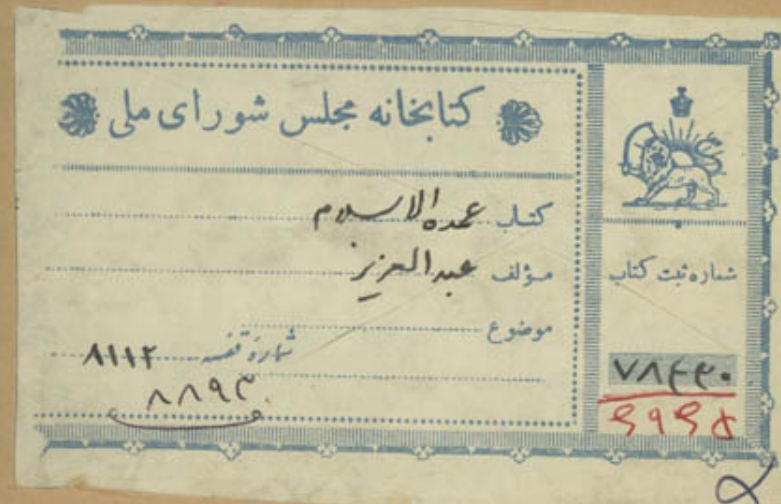 کتابخانه مجلس شورای ملی
کتاب عمدة الاسلام
مؤلف عبدالعزیز
موضوع
شماره قفسه ۸۱۱۲
شماره ثبت کتاب